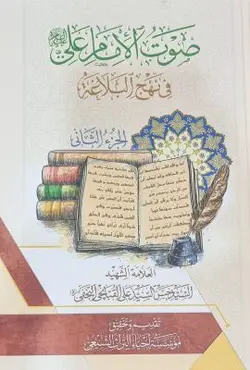 صوت الإمام علي
في نهج البلاغة
الجزء الثاني
العلامة الشهيد
السيد حسن السيد علي القبانجي النجفي
تقديم وتحقيق
مؤسسة إحياء التراث الشيعي